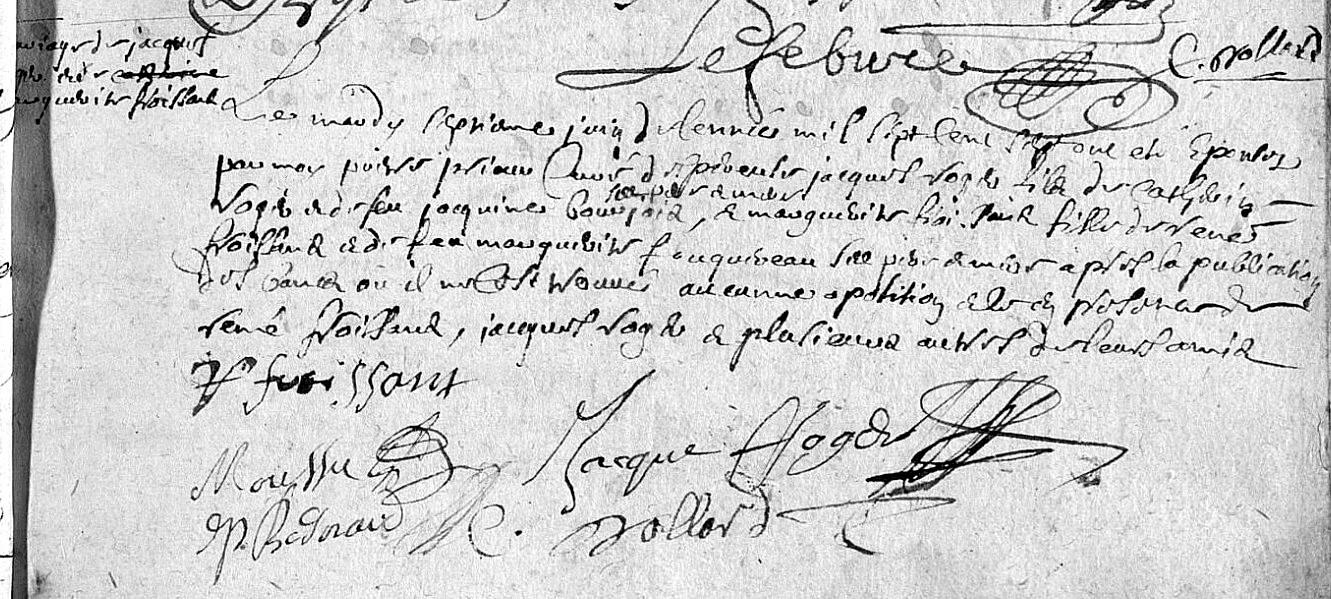 Lefebure C. Dollard
mariage de jacques
roger et de catherine
marguerite froissant
Le mardy septieme juin de lennée mil sept cent sept ont eté Epousez
par moy prestre prieur Curé de jacques roger fils de Catherin
roger et de feu jacquine bourjois, ses pere et mere & marguerite froissant fille de rené
froissant et de feu marguerite fouquereau ses pere & mere apres la publication
des bancs ou il ne sest trouvé aucunne opolition & le en presence de
rené froissant, jacques roger & plusieurs autres de leurs amis
r froissant
Moussu Jacque Roger
Bedoraud C. Dollard